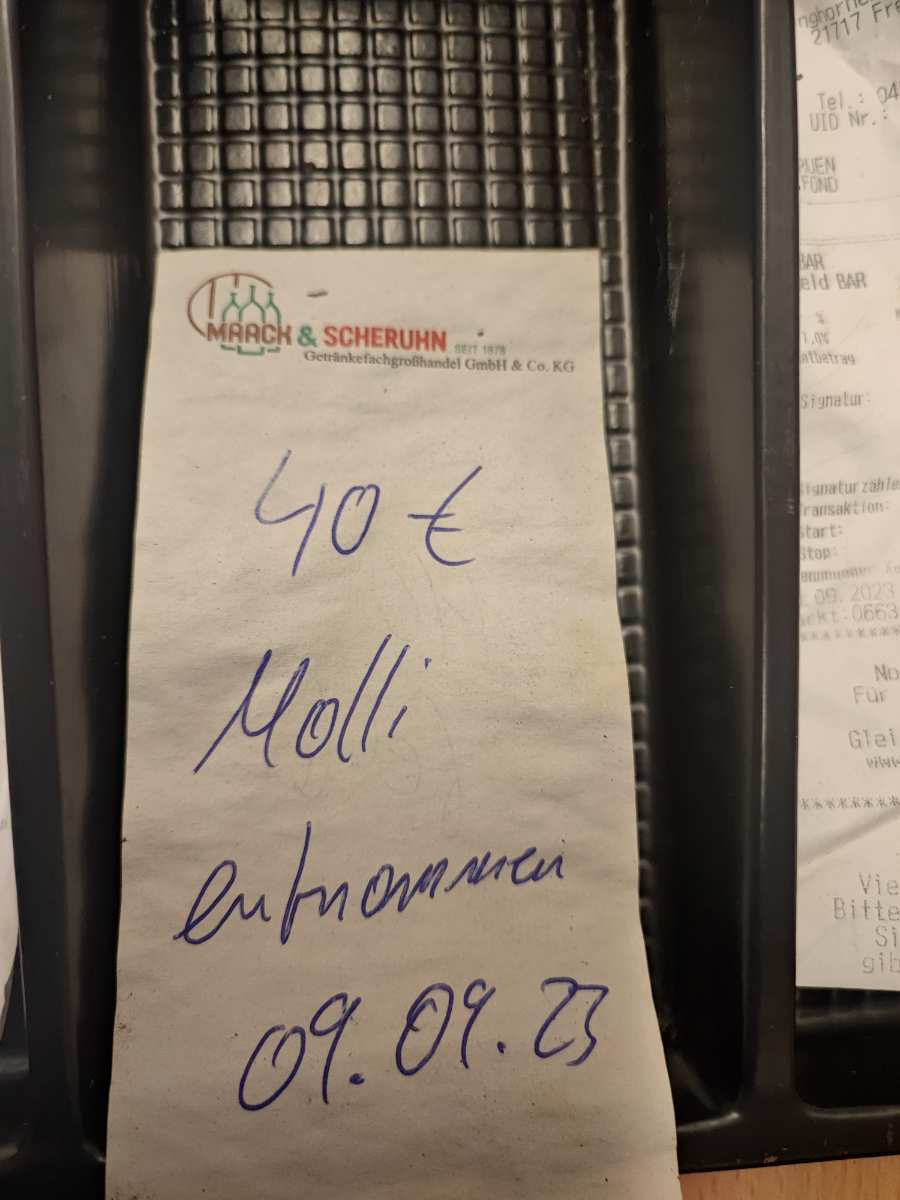 MAACK & SCHERUHN
SEIT 1878
Getränkefachgroßhandel GmbH & Co. KG
40 €
Molli
entnommen
09.09.23
21717 Fre
Tel.: 04
UID Nr.:
FOND
BAR
eld BAR
%
ntbetrag
Signatur:
Signaturzähle
Transaktion:
Start:
Stop:
09.2023
0663
*********
No
Für
Glei
www
********
Vie
Bitte
Si
gib